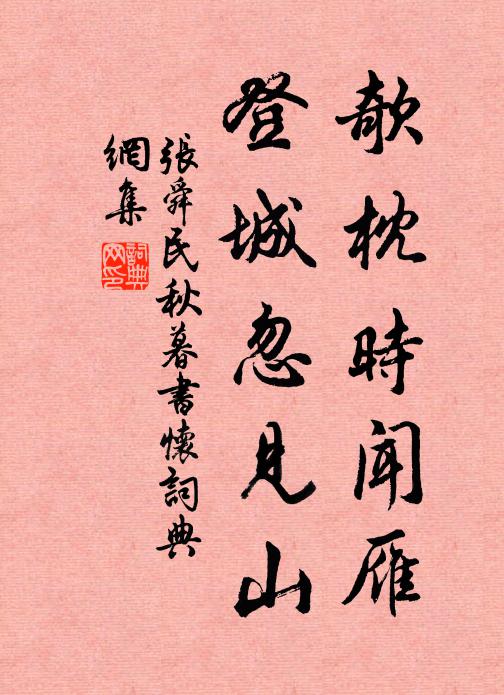 欹枕時闻雁
登城忽見山
張舜民秋暮書懷詞典
網集
詞典
网印